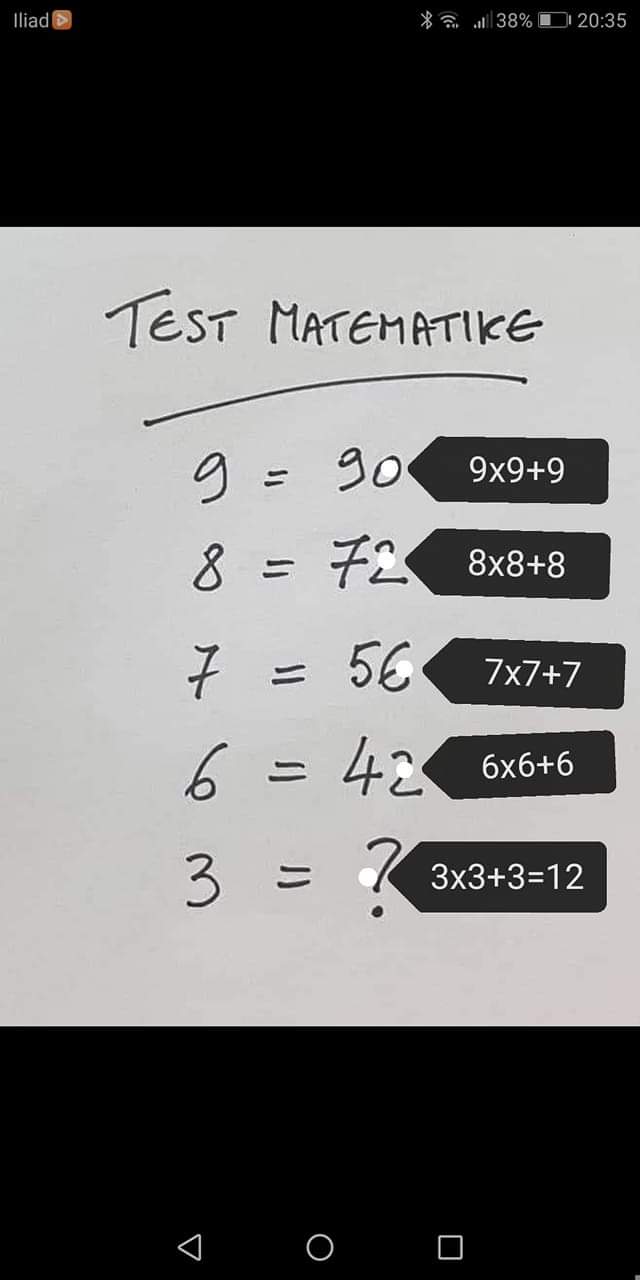 Iliad 38% 20:35
TEST MATEMATIKE
9 = 90 9x9+9
8 = 72 8x8+8
7 = 56 7x7+7
6 = 42 6x6+6
3 = ? 3x3+3=12